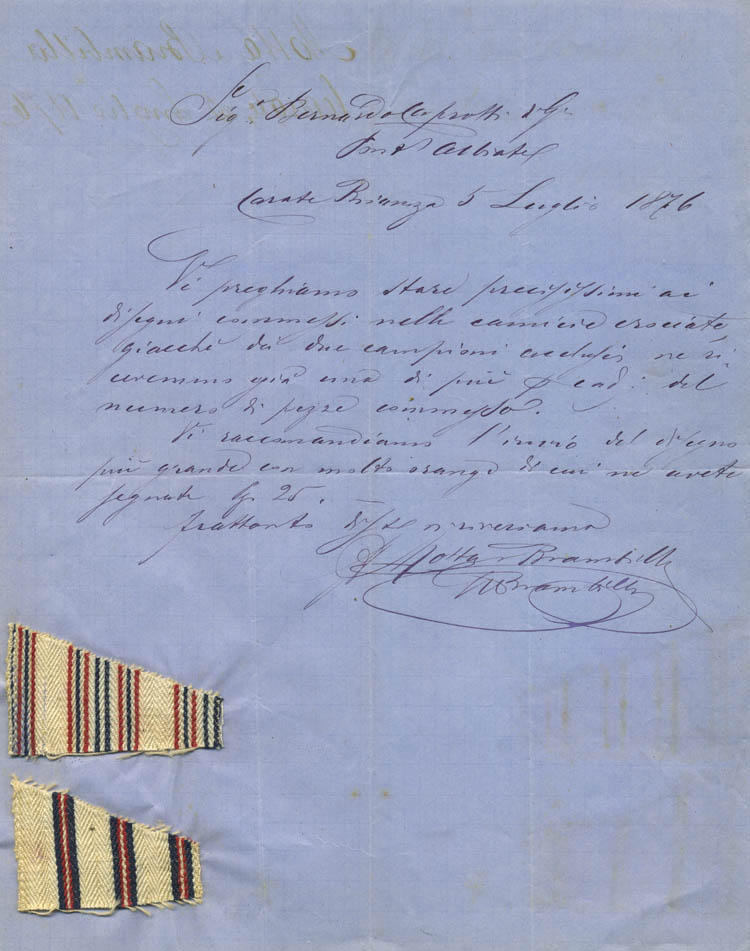 Sig.ri Bernardo Caprotti & Ci
Albiate
Carate Brianza 5 Luglio 1876
Vi preghiamo stare precisissimi ai
disegni commessi nelle camicie crociate,
giacchè dai due campioni acclusi, ne ri
ceremmo già una di più p cad: del
numero di pezze commesso.
Vi raccomandiamo l'invio del disegno
più grande con molto orange di cui ne avete
segnate 25.
Frattanto vi riveriamo
Motta & Brambilla
Brambilla
Motta & Brambilla
1876